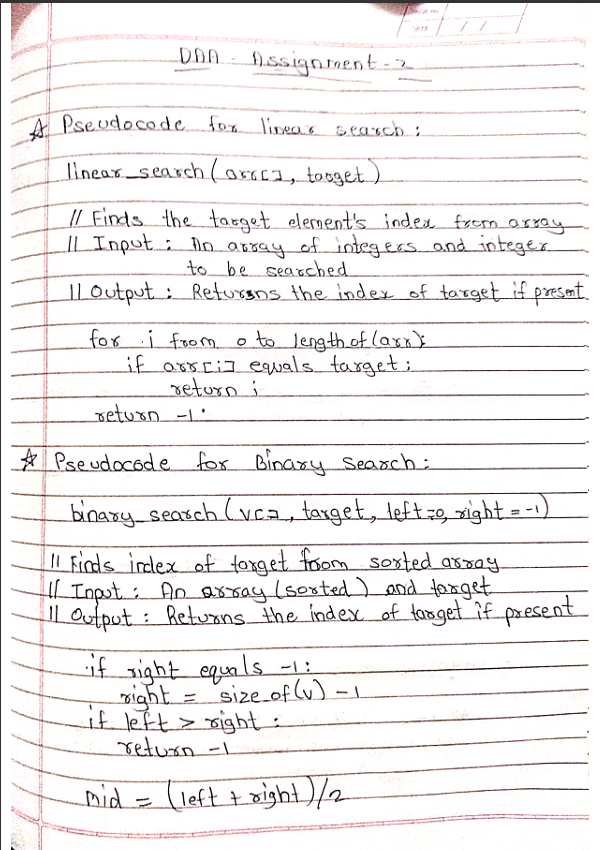 DAA - Assignment - 2
☆ Pseudocode for linear search :
linear_search ( arr[], target )
// Finds the target element's index from array
// Input : An array of integers and integer
to be searched
// Output : Returns the index of target if present
for i from 0 to length of (arr):
if arr[i] equals target :
return i
return -1
☆ Pseudocode for Binary search :
binary_search ( v[], target, left=0, right = -1)
// Finds index of target from sorted array
// Input : An array (sorted) and target
// Output : Returns the index of target if present
if right equals -1 :
right = size_of(v) - 1
if left > right :
return -1
mid = (left + right)/2